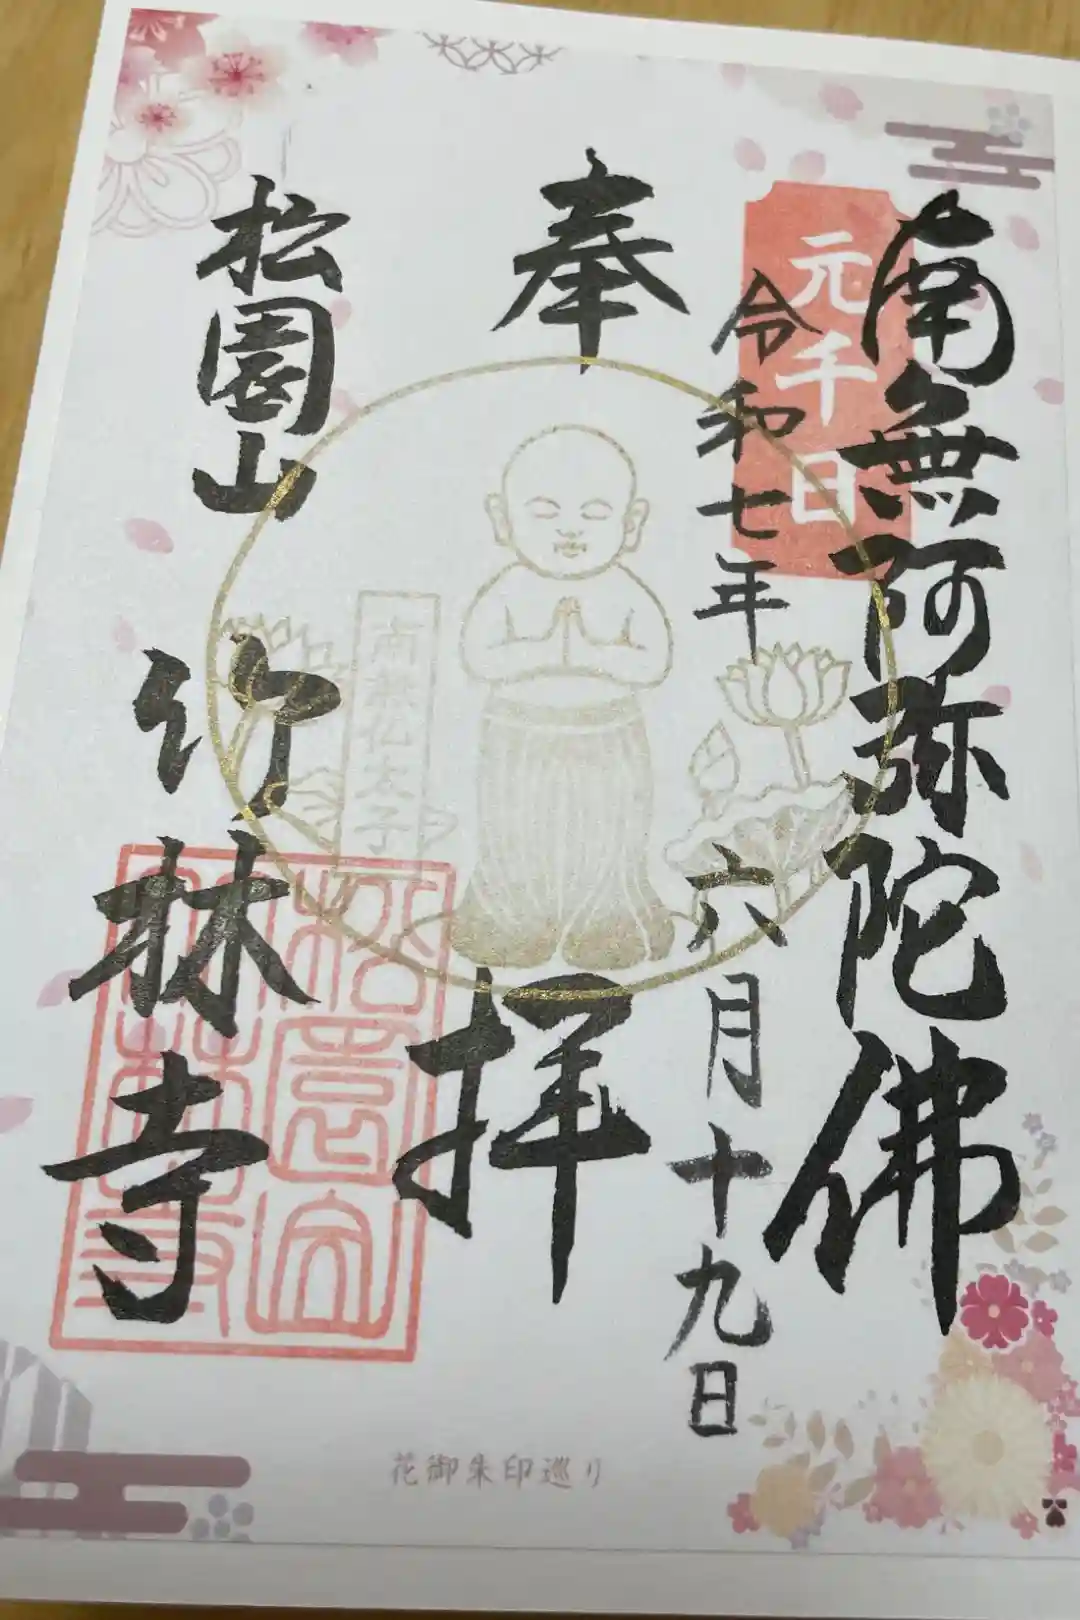 南無阿弥陀佛
元千日
令和七年
六月十九日
奉
拝
南無仏太子
松園山
竹林寺
花御朱印巡り